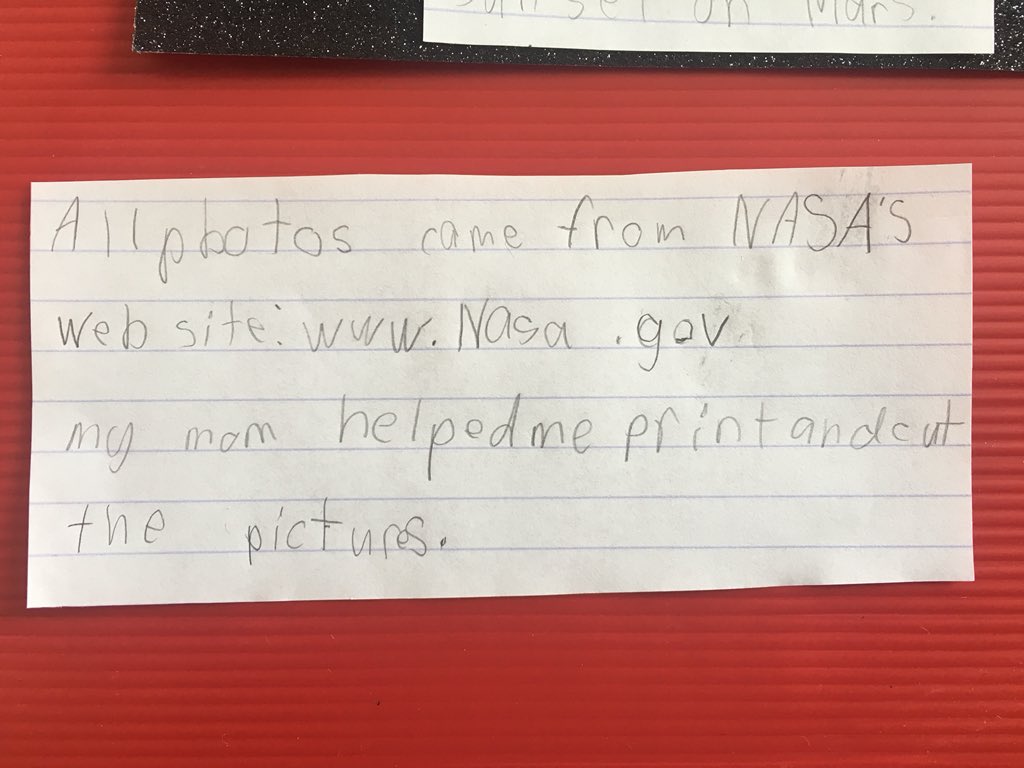 sunset on Mars.
All photos came from NASA's
web site: www.Nasa.gov
my mom helped me print and cut
the pictures.